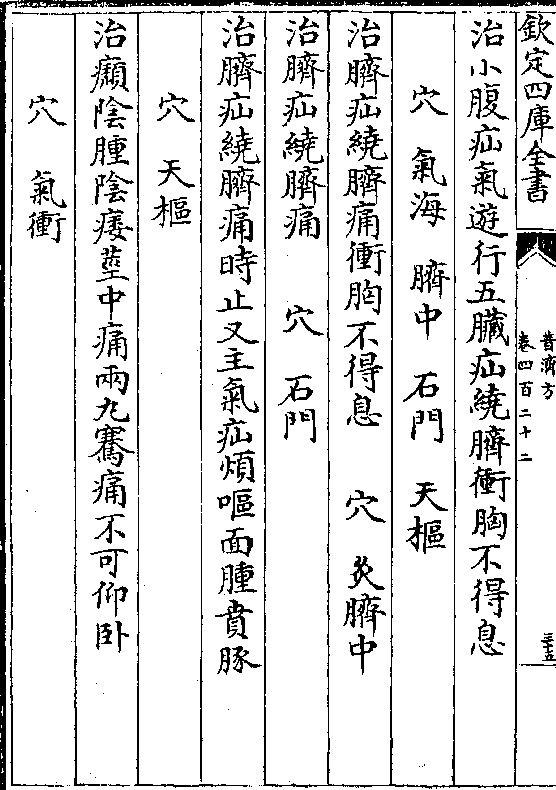 欽定四庫全書
普濟方
卷四百二十二
三五
治小腹疝氣遊行五臟疝繞臍衝胸不得息
穴 氣海 臍中 石門 天樞
治臍疝繞臍痛衝胸不得息 穴 灸臍中
治臍疝繞臍痛 穴 石門
治臍疝繞臍痛時止又主氣疝煩嘔面腫賁豚
穴 天樞
治㿗陰腫陰痿莖中痛兩丸騫痛不可仰卧
穴 氣衝